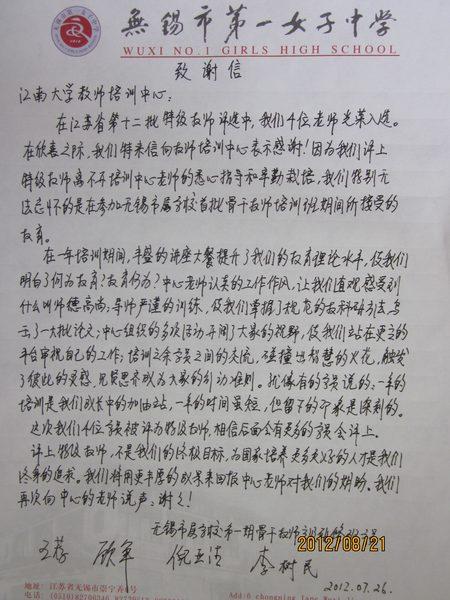 無錫市第一女子中学
WUXI NO.1 GIRLS HIGH SCHOOL
致谢信
江南大学教师培训中心：
在江苏省第十二批特级教师评选中，我们4位老师光荣入选。
在欣喜之际，我们特来信向教师培训中心表示感谢！因为我们评上
特级教师离不开培训中心老师的悉心指导和辛勤栽培，我们特别无
法忘怀的是在参加无锡市属学校首批骨干教师培训班期间所接受的
教育。
在一年培训期间，丰盛的讲座大餐提升了我们的教育理论水平，使我们
明白了何为教育？教育何为？中心老师认真的工作作风，让我们直观感受到
什么叫师德高尚；导师严谨的训练，使我们掌握了规范的教科研方法，写
了一大批论文；中心组织的多次活动开阔了大家的视野，使我们站在更高的
平台审视自己的工作；培训之余学员之间的交流，碰撞出智慧的火花，触发
了彼此的灵感，见贤思齐成为大家的行动准则。就像有的学员说的：一年的
培训是我们成长中的加油站，一年的时间虽短，但留下的印象是深刻的。
这次我们4位学员被评为特级教师，相信后面会有更多的学员会评上。
评上特级教师，不是我们的终极目标，为国家培养更多更好的人才是我们
终身的追求。我们将用更丰厚的成果来回报中心老师对我们的期盼。我们
再次向中心的老师说声：谢谢！
无锡市属学校第一期骨干教师
王 顾军 倪 李树民
2012.07.26.
2012/08/21
地址：江苏省无锡市崇宁弄1号
电话：(0510)82706346
Add:6 chongning